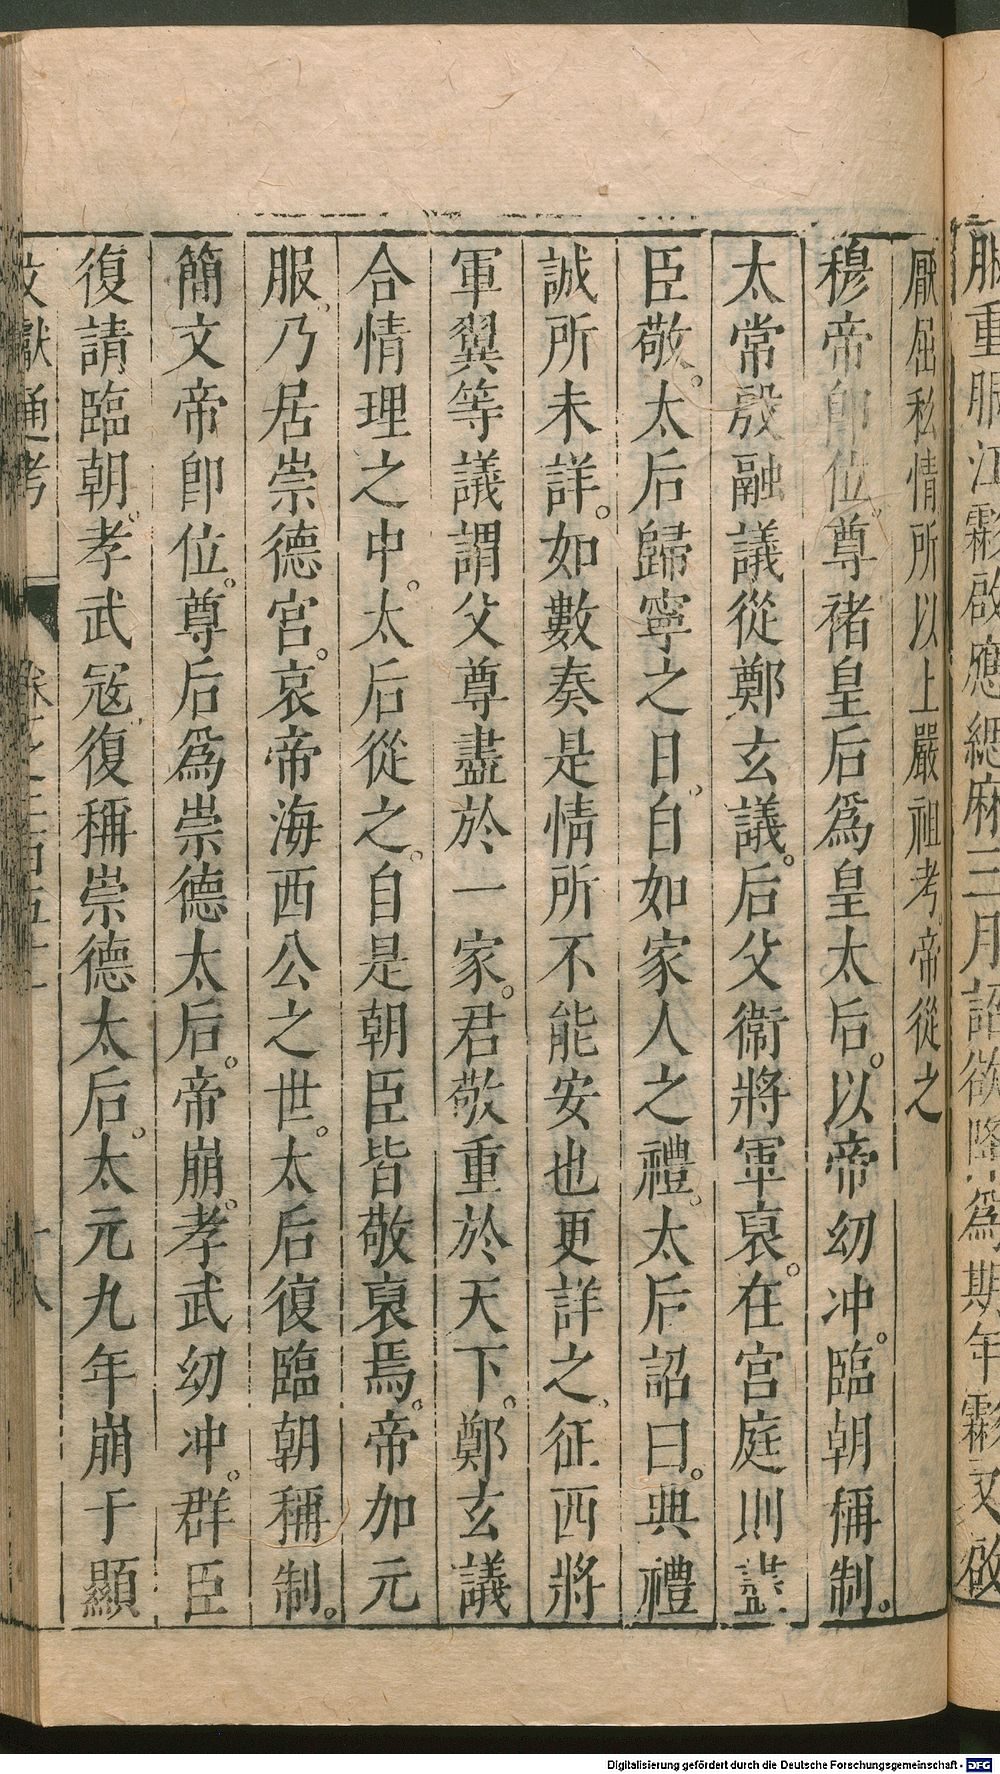 服重服江霦啟應緦麻三月詔欲降爲期年霦又啟
厭屈私情所以上嚴祖考帝從之
穆帝卽位尊褚皇后爲皇太后。以帝幼冲。臨朝稱制。
太常殷融議從鄭玄議。后父衛將軍裒。在宮庭則盡
臣敬。太后歸寧之日。自如家人之禮。太后詔曰。典禮
誠所未詳。如數奏是情所不能安也更詳之。征西將
軍翼等議謂父尊盡於一家。君敬重於天下。鄭玄議
合情理之中。太后從之。自是朝臣皆敬裒焉。帝加元
服。乃居崇德宮。哀帝海西公之世。太后復臨朝稱制。
簡文帝卽位。尊后爲崇德太后。帝崩。孝武幼冲。群臣
復請臨朝。孝武冠。復稱崇德太后。太元九年崩于顯
文獻通考 卷之二百五十二 十八
Digitalisierung gefördert durch die Deutsche Forschungsgemeinschaft - DFG